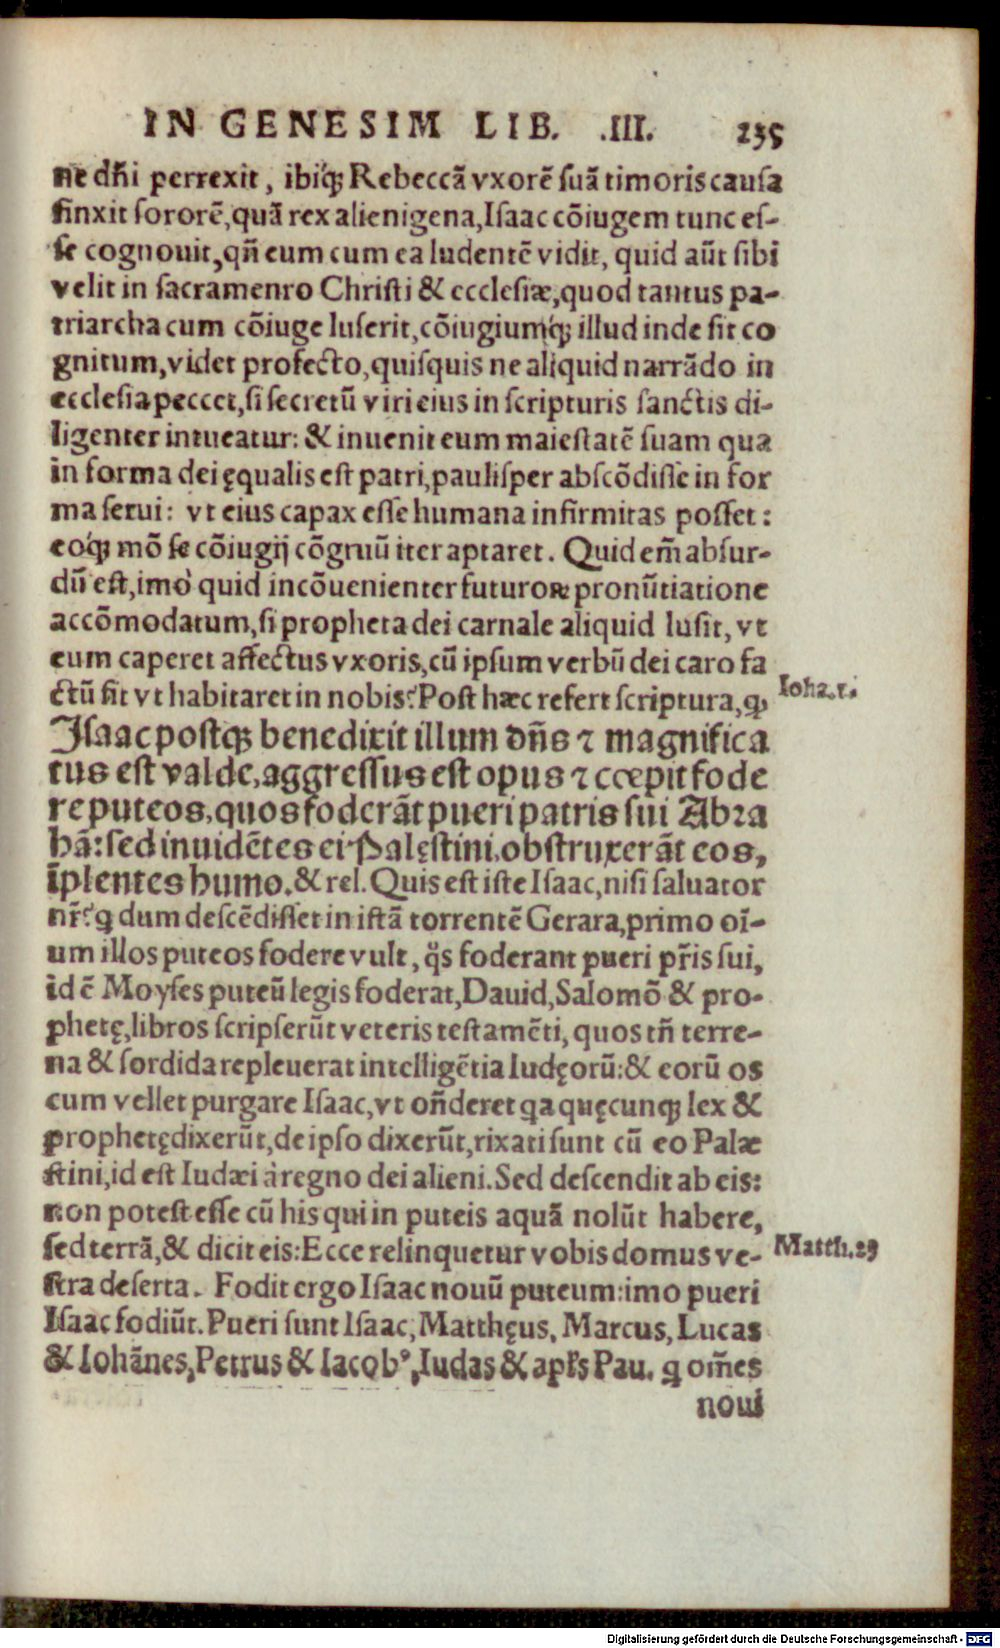 IN GENESIM LIB. .III. 235
ne dn̄i perrexit, ibiq́ꝫ Rebeccã vxorẽ suã timoris causa
finxit sororẽ, quã rex alienigena, Isaac cõiugem tunc es-
se cognouit, qñ eum cum ea ludentẽ vidit, quid aũt sibi
velit in sacramenro Christi & ecclesiæ, quod tantus pa-
triarcha cum cõiuge luserit, cõiugiumq́ꝫ illud inde sit co
gnitum, videt profecto, quisquis ne aliquid narrãdo in
ecclesia peccet, si secretũ viri eius in scripturis sanctis di-
ligenter intueatur: & inuenit eum maiestatẽ suam qua
in forma dei ęqualis est patri, paulisper abscõdisse in for
ma serui: vt eius capax esse humana infirmitas posset:
eoq́ꝫ mõ se cõiugij cõgruũ iter aptaret. Quid em̃ absur-
dũ est, imò quid incõuenienter futuroꝝ pronũtiatione
accõmodatum, si propheta dei carnale aliquid lusit, vt
eum caperet affectus vxoris, cũ ipsum verbũ dei caro fa
ctũ sit vt habitaret in nobis? Post hæc refert scriptura, ꝙ
Ioha.1.
Isaac postꝙꝫ benedixit illum dñs ⁊ magnifica
tus est valde, aggressus est opus ⁊ cœpit fode
re puteos, quos foderãt pueri patris sui Abra
hã: sed inuidẽtes ei Palęstini, obstruxerãt eos,
ĩplentes humo. & rel. Quis est iste Isaac, nisi saluator
nr̃? q dum descẽdisset in istã torrentẽ Gerara, primo oĩ-
um illos puteos fodere vult, q̊s foderant pueri pr̃is sui,
id ẽ Moyses puteũ legis foderat, Dauid, Salomõ & pro-
phetę, libros scripserũt veteris testamẽti, quos tñ terre-
na & sordida repleuerat intelligẽtia Iudęorũ: & eorũ os
cum vellet purgare Isaac, vt oñderet qa quęcunqꝫ lex &
prophetę dixerũt, de ipso dixerũt, rixati sunt cũ eo Palæ
stini, id est Iudæi à regno dei alieni. Sed descendit ab eis:
non potest esse cũ his qui in puteis aquã nolũt habere,
sed terrã, & dicit eis: Ecce relinquetur vobis domus ve-
Matth.23
stra deserta. Fodit ergo Isaac nouũ puteum: imo pueri
Isaac fodiũt. Pueri sunt Isaac, Matthęus, Marcus, Lucas
& Iohãnes, Petrus & Iacobꝰ, Iudas & apl̃s Pau. q om̃es
noui
Digitalisierung gefördert durch die Deutsche Forschungsgemeinschaft - DFG